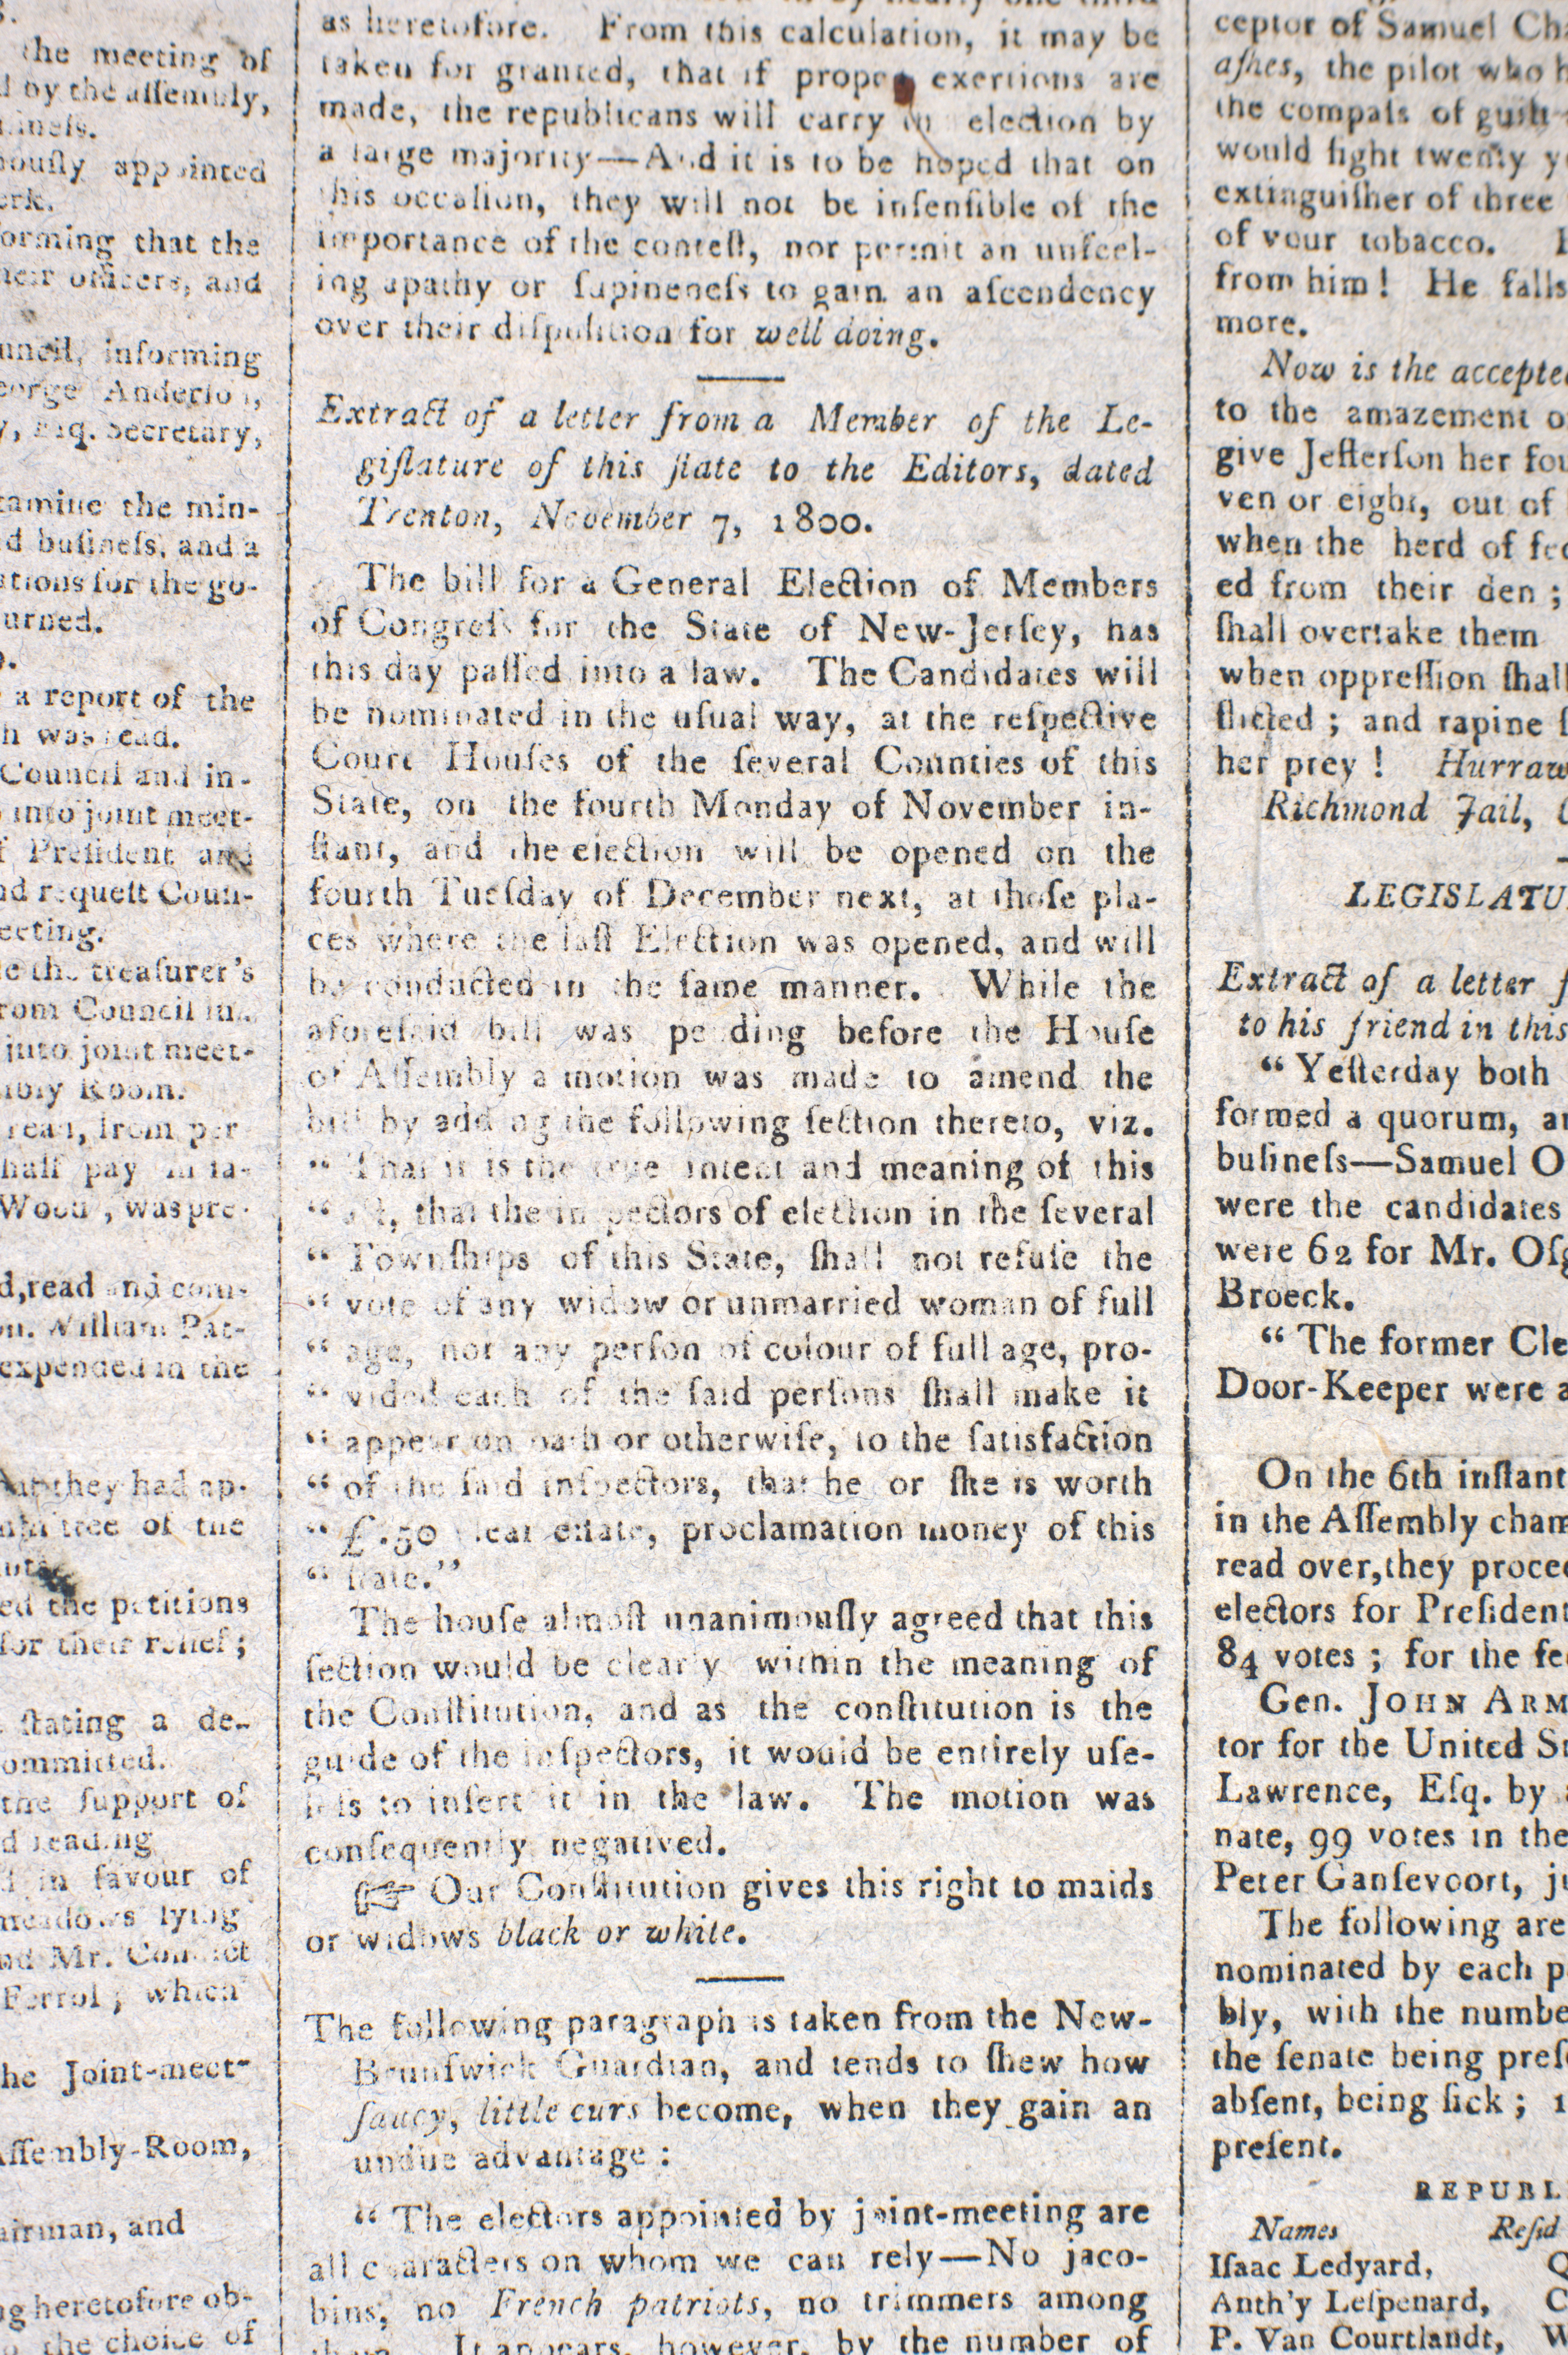 the meeting of
by the assembly,
appointed
orming that the
officers, and
informing
eorge Anderson,
Esq. Secretary,
tamine the min-
d busineſs, and a
ations for the go-
urned.
a report of the
h was read.
Council and in-
into joint meet-
f Preſident and
nd requeſt Coun-
eeting.
e the treaſurer's
rom Council in
into joint meet-
mbly Room.
read, from per
half pay in fa-
Wood, was pre-
d, read and com-
on. William Pat-
expended in the
they had ap-
mittee of the
ed the petitions
for their relief;
ſtating a de-
ommitted.
the ſupport of
d reading
in favour of
meadows lying
nd Mr. Condict
Ferrol; which
he Joint-meet-
Aſſembly-Room,
airman, and
ng heretofore ob-
the choice of
as heretofore. From this calculation, it may be
taken for granted, that if proper exertions are
made, the republicans will carry election by
a large majority—And it is to be hoped that on
this occaſion, they will not be inſenſible of the
importance of the conteſt, nor permit an unfeel-
ing apathy or ſupineneſs to gain an aſcendency
over their diſpoſition for well doing.
Extract of a letter from a Member of the Le-
giſlature of this ſtate to the Editors, dated
Trenton, November 7, 1800.
The bill for a General Election of Members
of Congreſs for the State of New-Jerſey, has
this day paſſed into a law. The Candidates will
be nominated in the uſual way, at the reſpective
Court Houſes of the ſeveral Counties of this
State, on the fourth Monday of November in-
ſtant, and the election will be opened on the
fourth Tueſday of December next, at thoſe pla-
ces where the laſt Election was opened, and will
be conducted in the ſame manner. While the
aforeſaid bill was pending before the Houſe
of Aſſembly a motion was made to amend the
bill by adding the following ſection thereto, viz.
“ That it is the true intent and meaning of this
“ act, that the inſpectors of election in the ſeveral
“ Townſhips of this State, ſhall not refuſe the
“ vote of any widow or unmarried woman of full
“ age, nor any perſon of colour of full age, pro-
“ vided each of the ſaid perſons ſhall make it
“ appear on oath or otherwiſe, to the ſatisfaction
“ of the ſaid inſpectors, that he or ſhe is worth
“ £.50 clear eſtate, proclamation money of this
“ ſtate.”
The houſe almoſt unanimouſly agreed that this
ſection would be clearly within the meaning of
the Conſtitution, and as the conſtitution is the
guide of the inſpectors, it would be entirely uſe-
leſs to inſert it in the law. The motion was
conſequently negatived.
☞ Our Conſtitution gives this right to maids
or widows black or white.
The following paragraph is taken from the New-
Brunſwick Guardian, and tends to ſhew how
ſaucy, little curs become, when they gain an
undue advantage :
“ The electors appointed by joint-meeting are
all characters on whom we can rely—No jaco-
bins, no French patriots, no trimmers among
them. It appears, however, by the number of
ceptor of Samuel Cha
aſhes, the pilot who h
the compaſs of guilt
would fight twenty y
extinguiſher of three
of your tobacco.
from him! He falls
more.
Now is the accepted
to the amazement o
give Jefferſon her fou
ven or eight, out of
when the herd of fed
ed from their den ;
ſhall overtake them
when oppreſſion ſhall
flicted ; and rapine ſ
her prey ! Hurraw
Richmond Jail,
LEGISLATU
Extract of a letter f
to his friend in this
“ Yeſterday both
formed a quorum, an
buſineſs—Samuel O
were the candidates
were 62 for Mr. Oſg
Broeck.
“ The former Cle
Door-Keeper were a
On the 6th inſtant
in the Aſſembly cham
read over, they procee
electors for Preſident
84 votes ; for the fe
Gen. JOHN ARM
tor for the United St
Lawrence, Eſq. by
nate, 99 votes in the
Peter Ganſevoort, ju
The following are
nominated by each p
bly, with the numbe
the ſenate being preſe
abſent, being ſick ; 1
preſent.
REPUBL
Names Reſid
Iſaac Ledyard, Q
Anth'y Leſpenard, C
P. Van Courtlandt, W